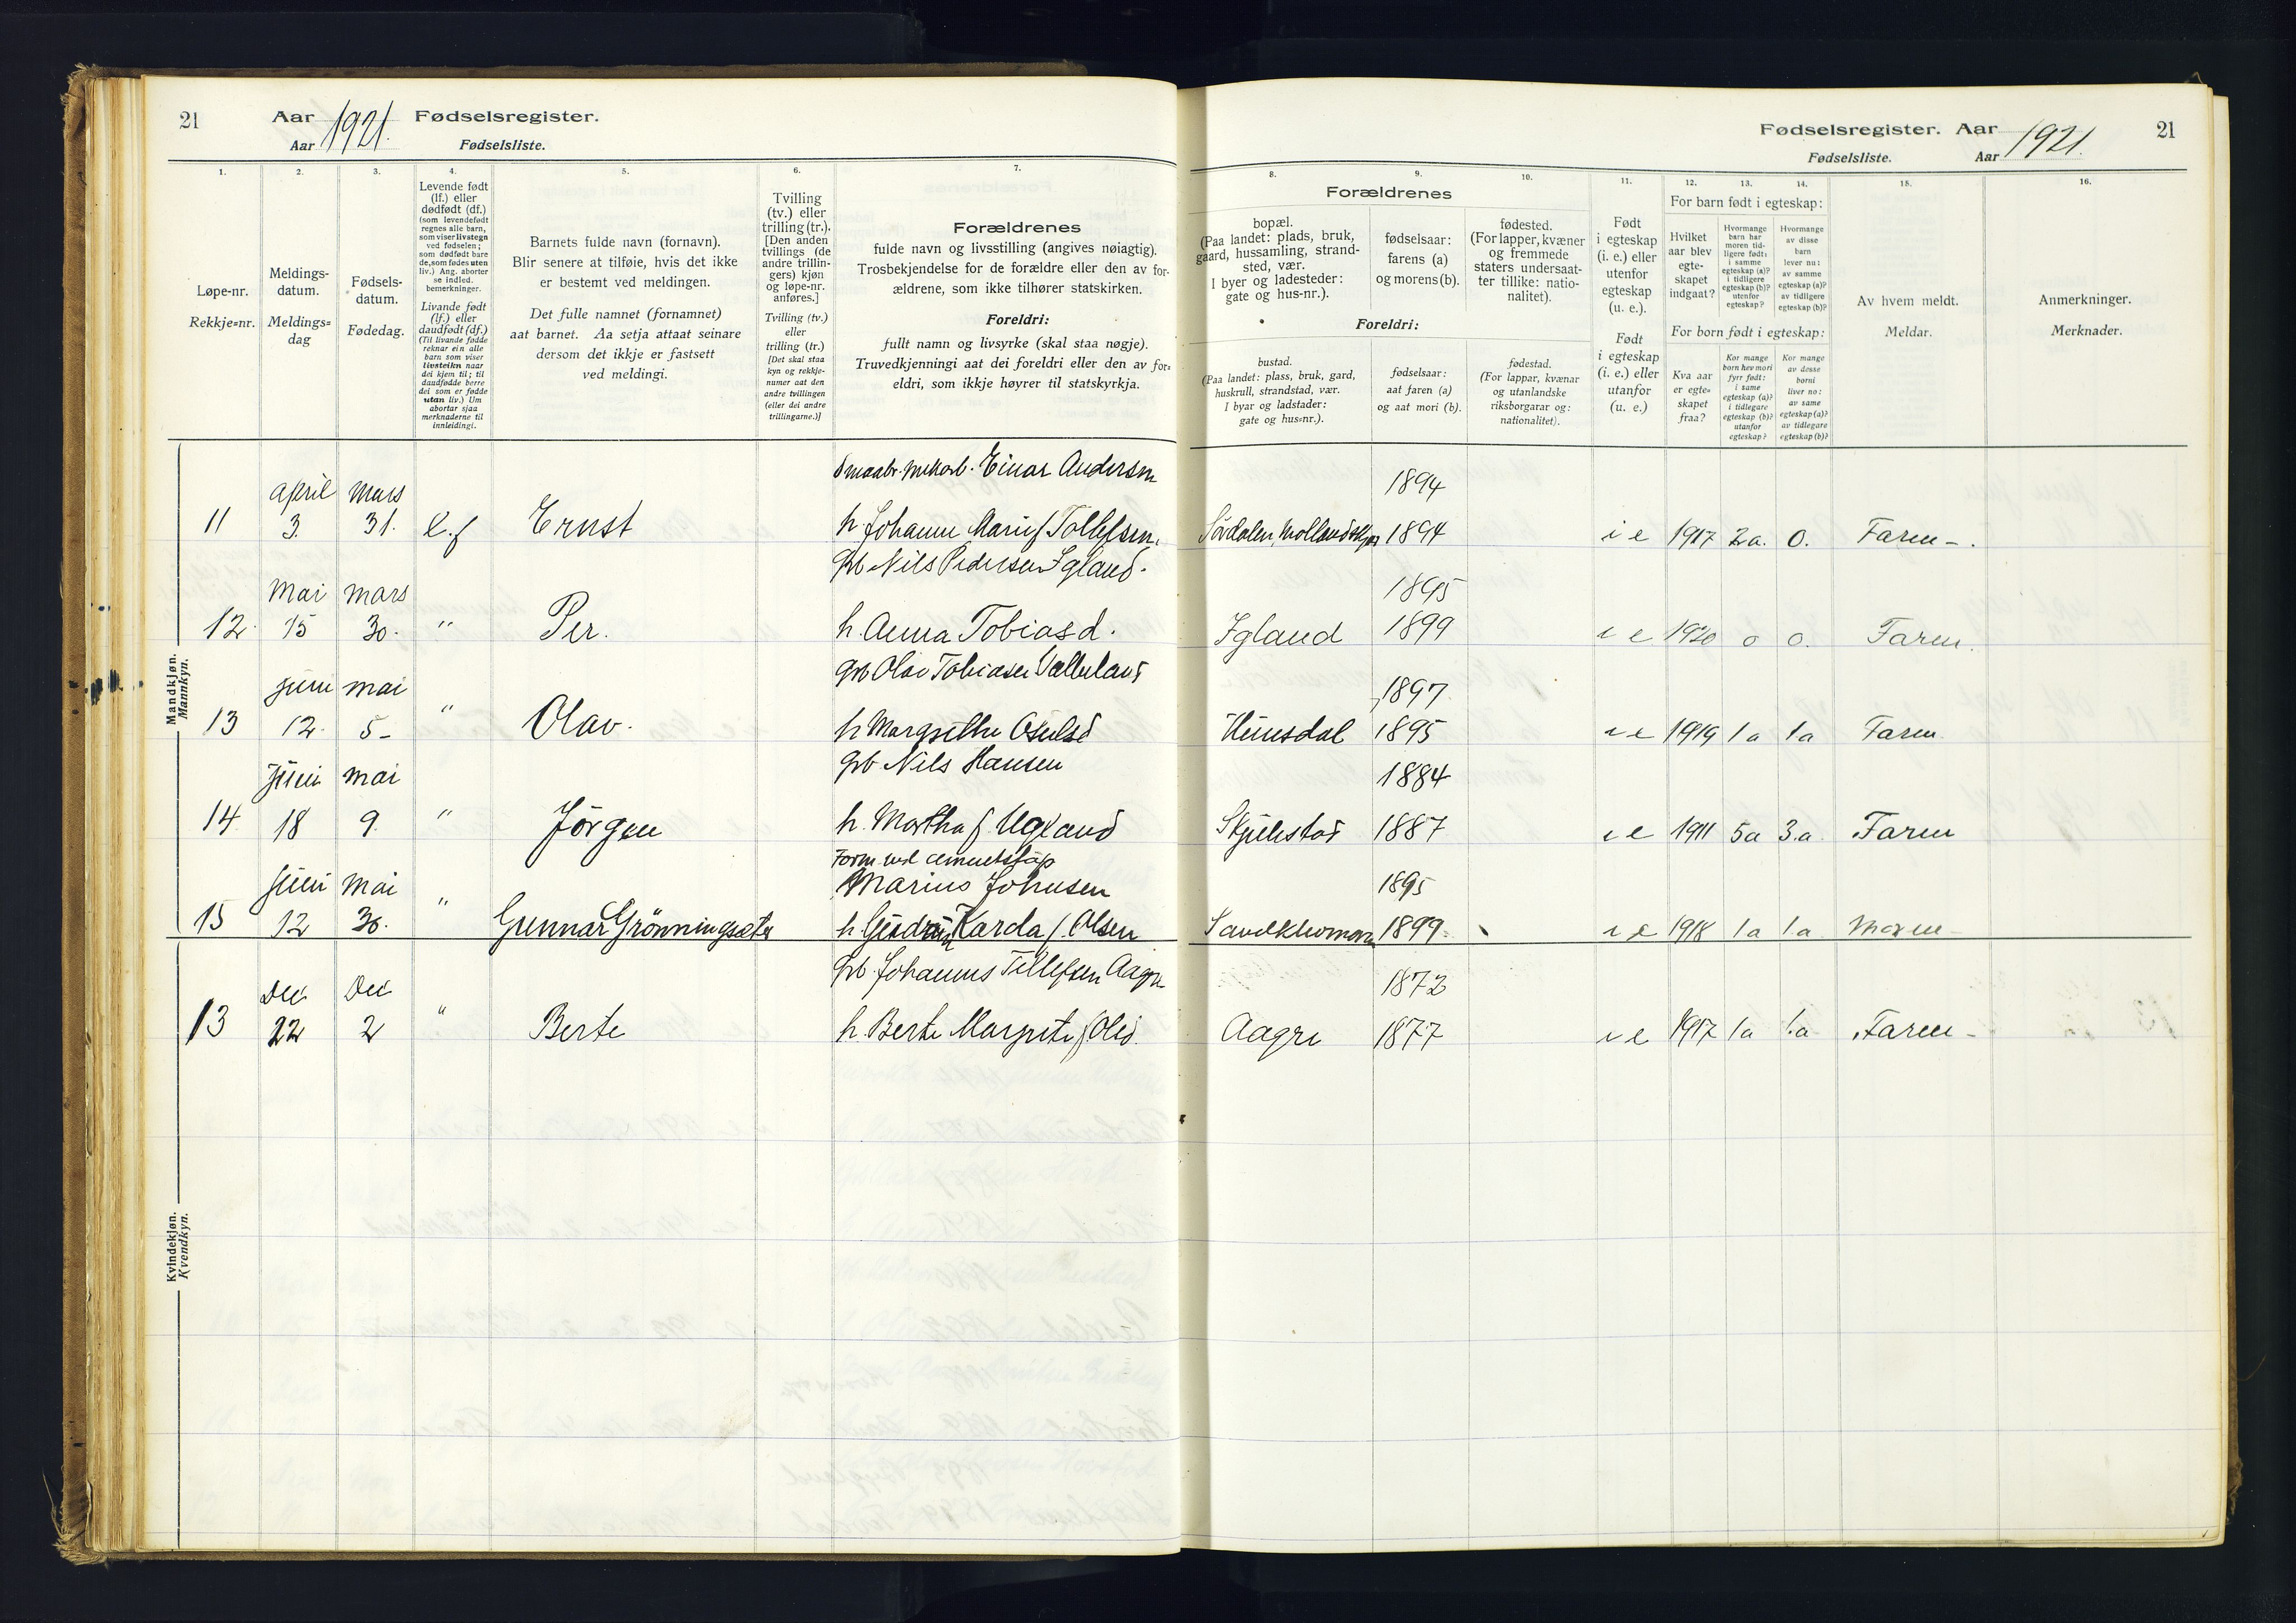 21
Aar 1921. Fødselsregister.
Aar Fødselsliste.
Fødselsregister. Aar 1921.
Fødselsliste. Aar
21
1. 2. 3. 4. 5. 6. 7. 8. 9. 10. 11. 12. 13. 14. 15. 16.
Løpe-nr.
Rekkje=nr.
Meldings-
datum.
Meldings=
dag
Fødsels-
datum.
Fødedag.
Levende født
(lf.) eller
dødfødt (df.)
(som levendefødt
regnes alle barn,
som viser livstegn
ved fødselen;
som dødfødt bare
de, som fødes uten
liv.) Ang. aborter
se indled.
bemerkninger.
Livande født
(lf.) eller
daudfødt (df.)
(Til livande fødde
reknar ein alle
barn som viser
livsteikn naar
dei kjem til; til
daudfødde berre
dei som er fødde
utan liv.) Um
abortar sjaa
merknaderne til
innleidingi.
Barnets fulde navn (fornavn).
Blir senere at tilføie, hvis det ikke
er bestemt ved meldingen.
Det fulle namnet (fornamnet)
aat barnet. Aa setja attaat seinare
dersom det ikkje er fastsett
ved meldingi.
Tvilling
(tv.) eller
trilling (tr.).
[Den anden
tvillings (de
andre trillin-
gers) kjøn
og løpe-nr.
anføres.]
Tvilling (tv.)
eller
trilling (tr.)
[Det skal staa
kyn og rekkje-
numer aat den
andre tvillingen
(eller dei andre
trillingarne.)]
Forældrenes
fulde navn og livsstilling (angives nøiagtig).
Trosbekjendelse for de forældre eller den av for-
ældrene, som ikke tilhører statskirken.
Foreldri:
fullt namn og livsyrke (skal staa nøgje).
Truvedkjenningi aat dei foreldri eller den av for=
eldri, som ikkje høyrer til statskyrkja.
Forældrenes
bopæl.
(Paa landet: plads, bruk,
gaard, hussamling, strand-
sted, vær.
I byer og ladesteder:
gate og hus-nr.).
fødselsaar:
farens (a)
og morens (b).
fødested.
(For lapper, kvæner
og fremmede
staters undersaat-
ter tillike: natio-
nalitet).
Foreldri:
bustad.
(Paa landet: plass, bruk, gard,
huskrull, strandstad, vær.
I byar og ladstader:
gate og hus=nr.).
fødselsaar:
aat faren (a)
og aat mori (b).
fødestad.
(For lappar, kvænar
og utanlandske
riksborgarar og:
nationalitet).
Født
i egteskap
(i. e.) eller
utenfor
egteskap
(u. e.).
Født
i egteskap
(i. e.) eller
utanfor
(u. e.)
For barn født i egteskap:
Hvilket
aar blev
egte-
skapet
indgaat?
Hvormange
barn har
moren tid-
ligere født:
i samme
egteskap (a)?
i tidligere
egteskap (b)?
utenfor
egteskap?
Hvormange
av disse
barn
lever nu:
av samme
egteskap (a)?
av tidligere
egteskap (b)?
For born født i egteskap:
Kva aar
er egte-
skapet
fraa?
Kor mange
born hev mori
fyrr født:
i same
egteskap (a)?
i tidlegare
egteskap (b)?
utanfor
egteskap?
Kor mange
av desse
borni
liver no:
av same
egteskap (a)?
av tidlegare
egteskap (b)?
Av hvem meldt.
Meldar.
Anmerkninger.
Merknader.
Mandkjøn.
Mannkyn.
Einar Andersen 1894
11 april 3. Mars 31. L.f Ernst h. Johanne Marie f Tollefsen. 1894 i e 1917 2a. 0. Faren -.
Gb Nils Pedersen Igland. 1895
12. Mai 15 mars 30. " Per. h. Anna Tobiasd. Igland 1899 i e 1920 0 0. Faren.
Gb Olav Tobiasen 1897.
13 juni 12. mai 5- " Olav. h Margrethe 1895 i e 1919 1a 1a Faren
Gb Nils Hansen 1884
14 Juni 18 mai 9. " Jörgen h. Martha f. Ugland 1887 i e 1911 5a 3.a Faren
Form. ved
Marius Johnsen 1895
15 juni 12 Mai 30. " Gunnar Grönningsæter h Gudrun Karda f. Olsen 1899 i e 1918 1a 1.a Moren
Kvindekjøn.
Kvendkyn.
Gb. Johannes Tellefsen Aagre 1872
13 Dec 22 Dec 2 " Berte h. Berte Margrete f Olsd. Aagre 1877 i e 1917 1a 1.a Faren -